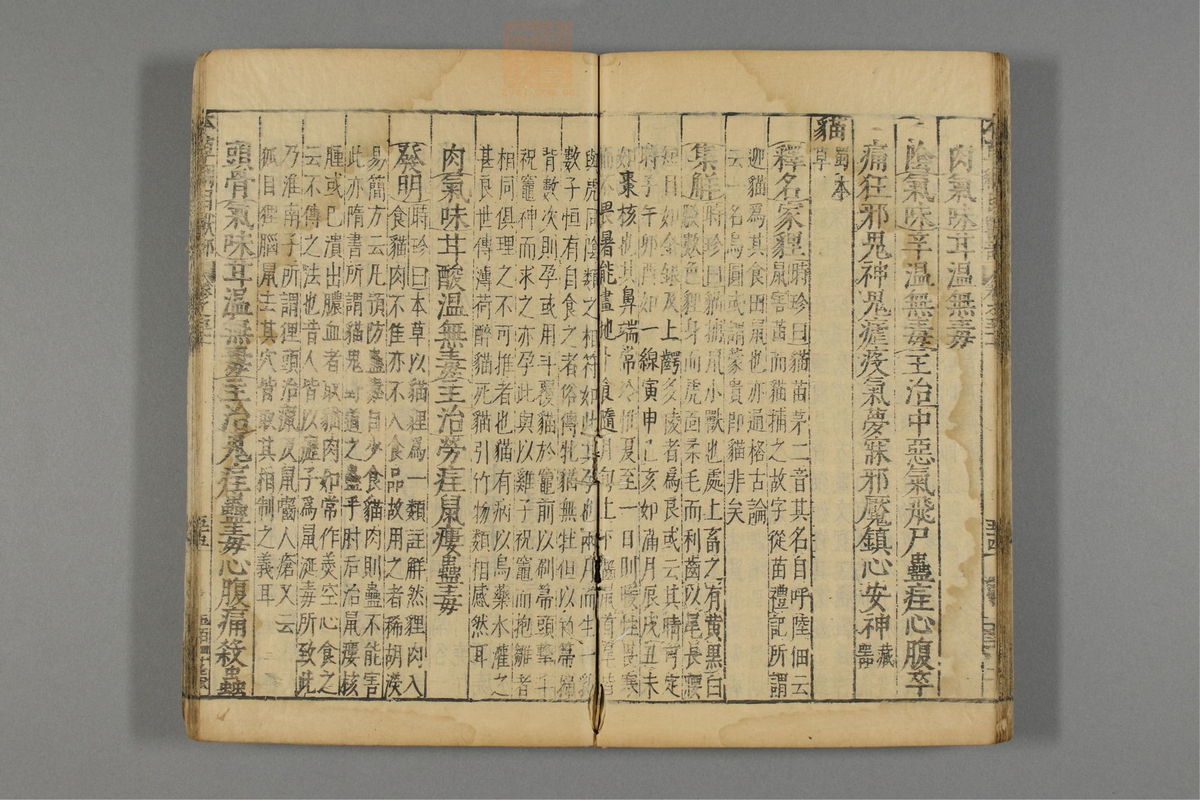 肉氣味甘溫無毒
陰氣味辛溫無毒主治中惡氣飛尸蠱疰心腹卒
痛狂邪鬼神鬼瘧疫氣夢寐邪魘鎮心安神藏器
貓蜀本草
釋名家貍時珍曰貓苗茅二音其名自呼陸佃云
鼠害苗而貓捕之故字從苗禮記所謂
迎貓爲其食田鼠也亦通格古論
云一名烏圓或謂蒙貴即貓非矣
集解時珍曰貓捕鼠小獸也處上畜之有黃黑白
駁數色貍身而虎面柔毛而利齒以尾長腰
短目如金銀及上齶多稜者爲良或云其睛可定
時子午卯酉如一線寅申巳亥如滿月辰戌丑未
如棗核也其鼻端常冷惟夏至一日則暖性畏寒
而不畏暑能畫地卜食隨月旬上下齧鼠首尾皆
與虎同陰類之相符如此其孕也兩月而生一乳
數子恒有自食之者俗傳牝貓無牡但以竹箒掃
背數次則孕或用斗覆貓於竈前以刷帚頭擊斗
祝竈神而求之亦孕此與以雞子祝竈而抱雛者
相同俱理之不可推者也貓有病以烏藥水灌之
甚良世傳薄荷醉貓死貓引竹物類相感然耳
肉氣味甘酸溫無毒主治勞疰鼠瘻蠱毒
發明時珍曰本草以貓貍爲一類註解然貍肉入
食貓肉不佳亦不入食品故用之者稀胡濙
易簡方云凡預防蠱毒自少食貓肉則蠱不能害
此亦隋書所謂貓鬼野道之蠱乎肘后治鼠瘻核
腫或已潰出膿血者取貓肉如常作羹空心食之
云不傳之法也昔人皆以癧子爲鼠涎毒所致此
乃淮南子所謂貍頭治癙及鼠齧人瘡又云
狐目貍腦鼠去其穴皆取其相制之義耳
頭骨氣味甘溫無毒主治鬼疰蠱毒心腹痛殺蟲